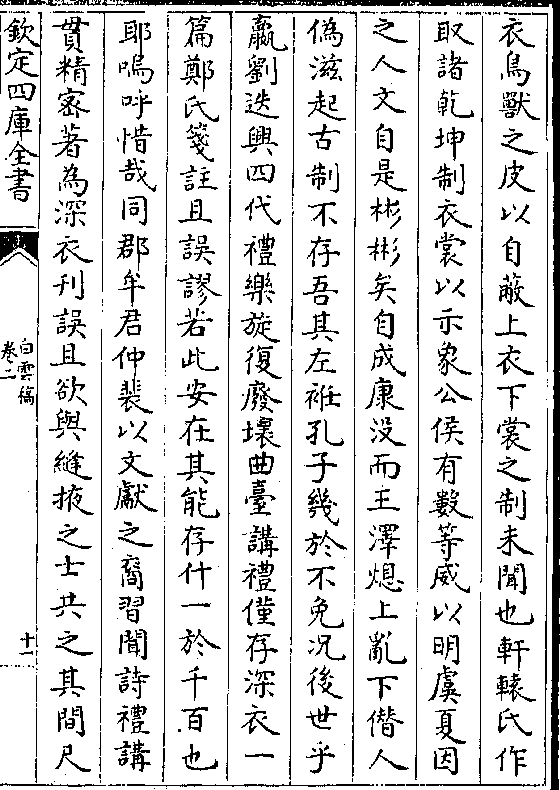 衣鳥獸之皮以自蔽上衣下裳之制未聞也軒轅氏作
取諸乾坤制衣裳以示象公侯有數等威以明虞夏因
之人文自是彬彬矣自成康没而王澤熄上亂下僭人
偽滋起古制不存吾其左袵孔子幾於不免况後世乎
嬴劉迭興四代禮樂旋復廢壞曲臺講禮僅存深衣一
篇鄭氏箋註且誤謬若此安在其能存什一於千百也
耶嗚呼惜哉同郡牟君仲裴以文獻之裔習聞詩禮講
貫精宻著為深衣刋誤且欲與縫掖之士共之其間尺
欽定四庫全書
白雲稿
卷二
十一